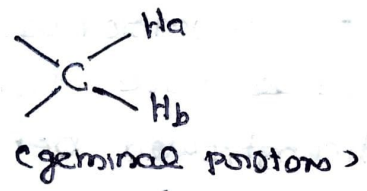 Ha
C
Hb
(geminal protons)